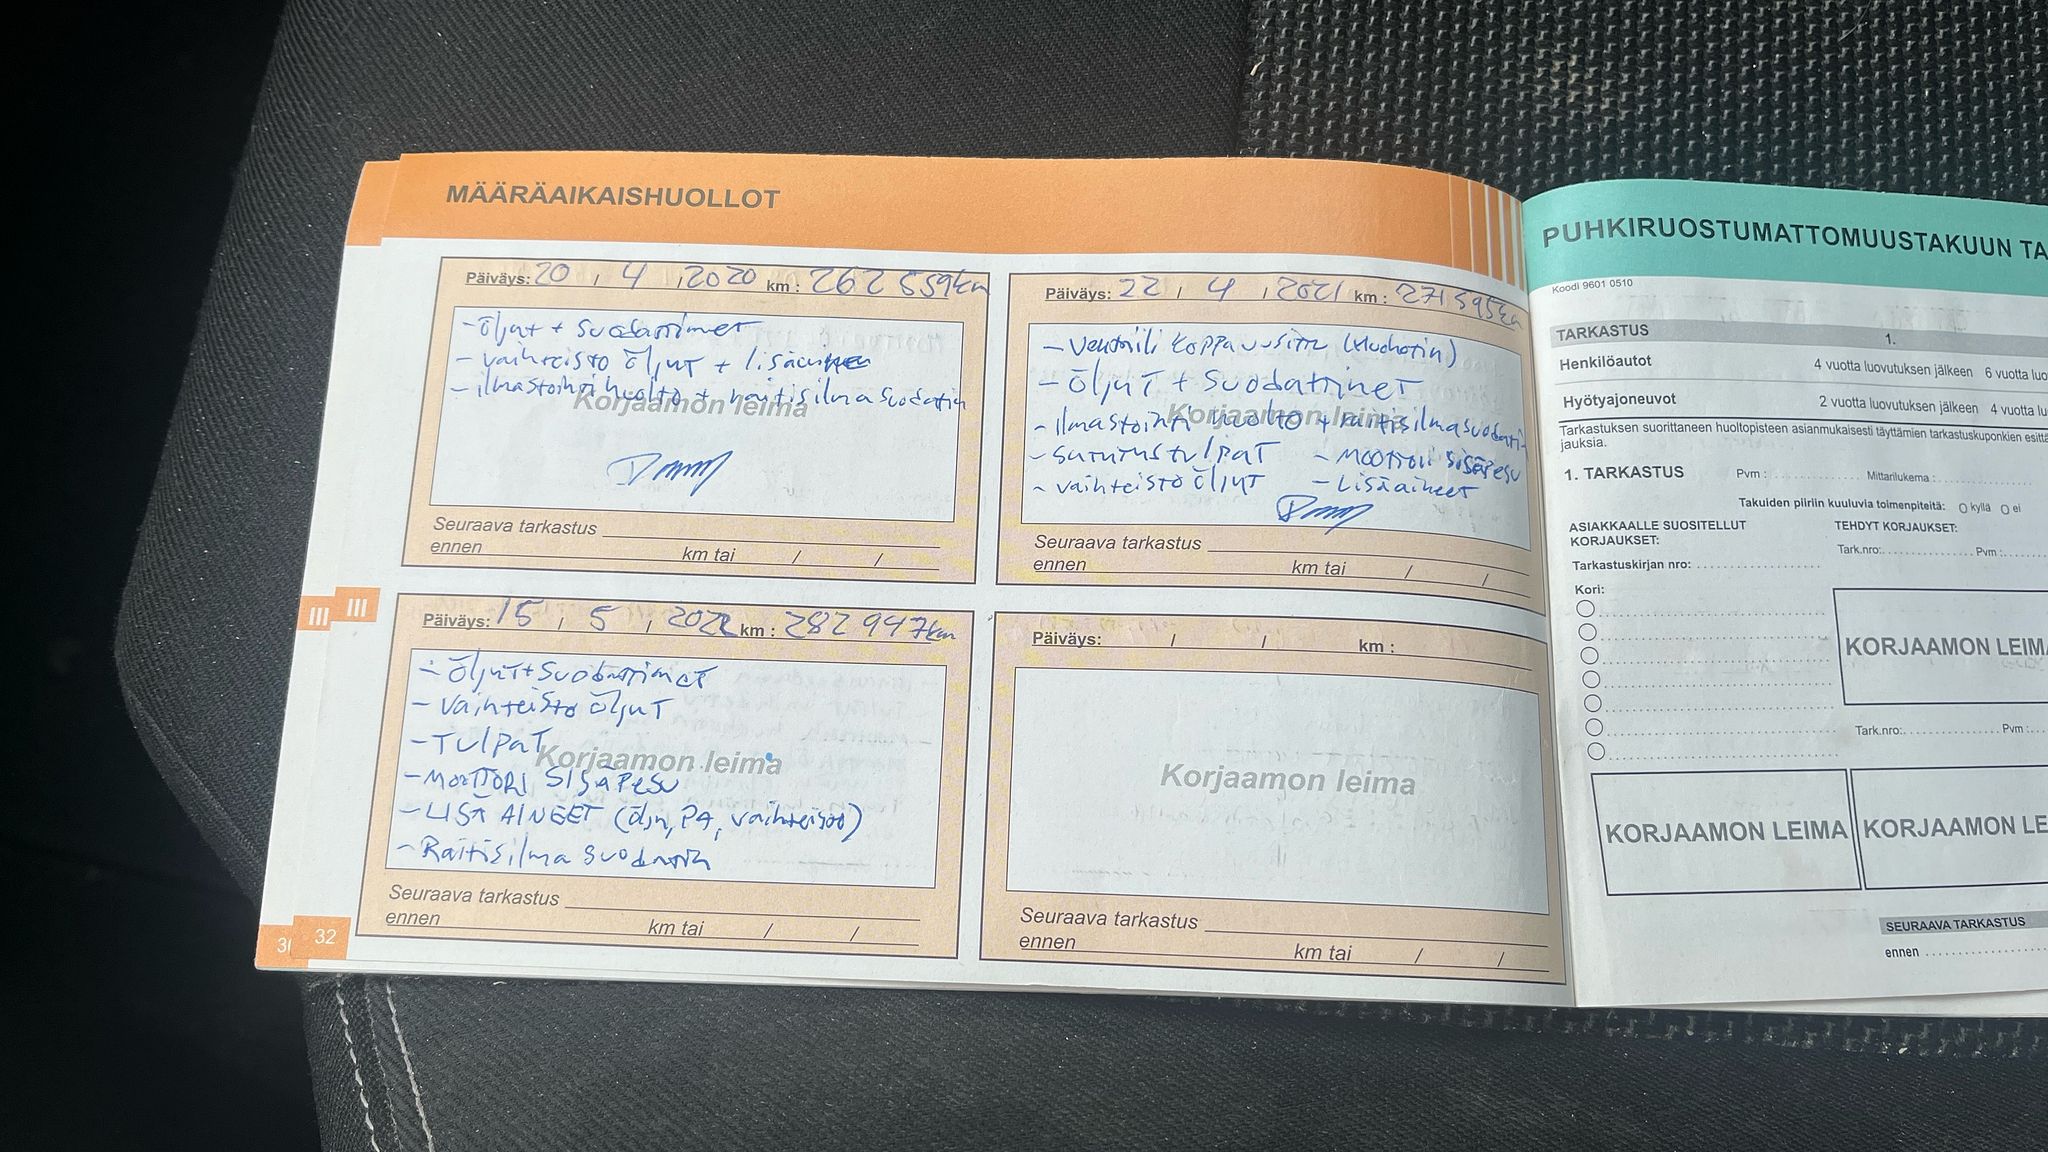 MÄÄRÄAIKAISHUOLLOT
Päiväys: 20 / 4 / 2020 km : 262 559km
- Öljyt + suodattimet
- vaihteisto öljyt + lisäaineet
- ilmastointi huolto + raitisilmasuodatin
Korjaamon leima
Seuraava tarkastus
ennen km tai / /
Päiväys: 22 / 4 / 2021 km : 271 595km
- Venttiili koppa uusittu
- Öljyt + Suodattimet
- ilmastointi huolto + raitisilmasuodatin
Korjaamon leima
- sytytystulpat - moottori sisäpesu
- vaihteisto öljyt - Lisäaineet
Seuraava tarkastus
ennen km tai / /
Päiväys: 15 / 5 / 2022 km : 282 947km
- Öljyt + Suodattimet
- Vaihteisto öljyt
- Tulpat
Korjaamon leima
- moottori sisäpesu
- LISÄ AINEET (öljy, PA, vaihteisto)
- Raitisilma suodatin
Seuraava tarkastus
ennen km tai / /
Päiväys: / / km :
Korjaamon leima
Seuraava tarkastus
ennen km tai / /
III III
32
PUHKIRUOSTUMATTOMUUSTAKUUN TA
Koodi 9601 0510
TARKASTUS 1.
Henkilöautot 4 vuotta luovutuksen jälkeen 6 vuotta luo
Hyötyajoneuvot 2 vuotta luovutuksen jälkeen 4 vuotta lu
Tarkastuksen suorittaneen huoltopisteen asianmukaisesti täyttämien tarkastuskuponkien esittä
jauksia.
1. TARKASTUS Pvm : Mittarilukema :
Takuiden piiriin kuuluvia toimenpiteitä: O kyllä O ei
ASIAKKAALLE SUOSITELLUT
KORJAUKSET:
TEHDYT KORJAUKSET:
Tark.nro: Pvm :
Tarkastuskirjan nro:
Kori:
KORJAAMON LEIMA
Tark.nro: Pvm :
KORJAAMON LEIMA KORJAAMON LE
SEURAAVA TARKASTUS
ennen